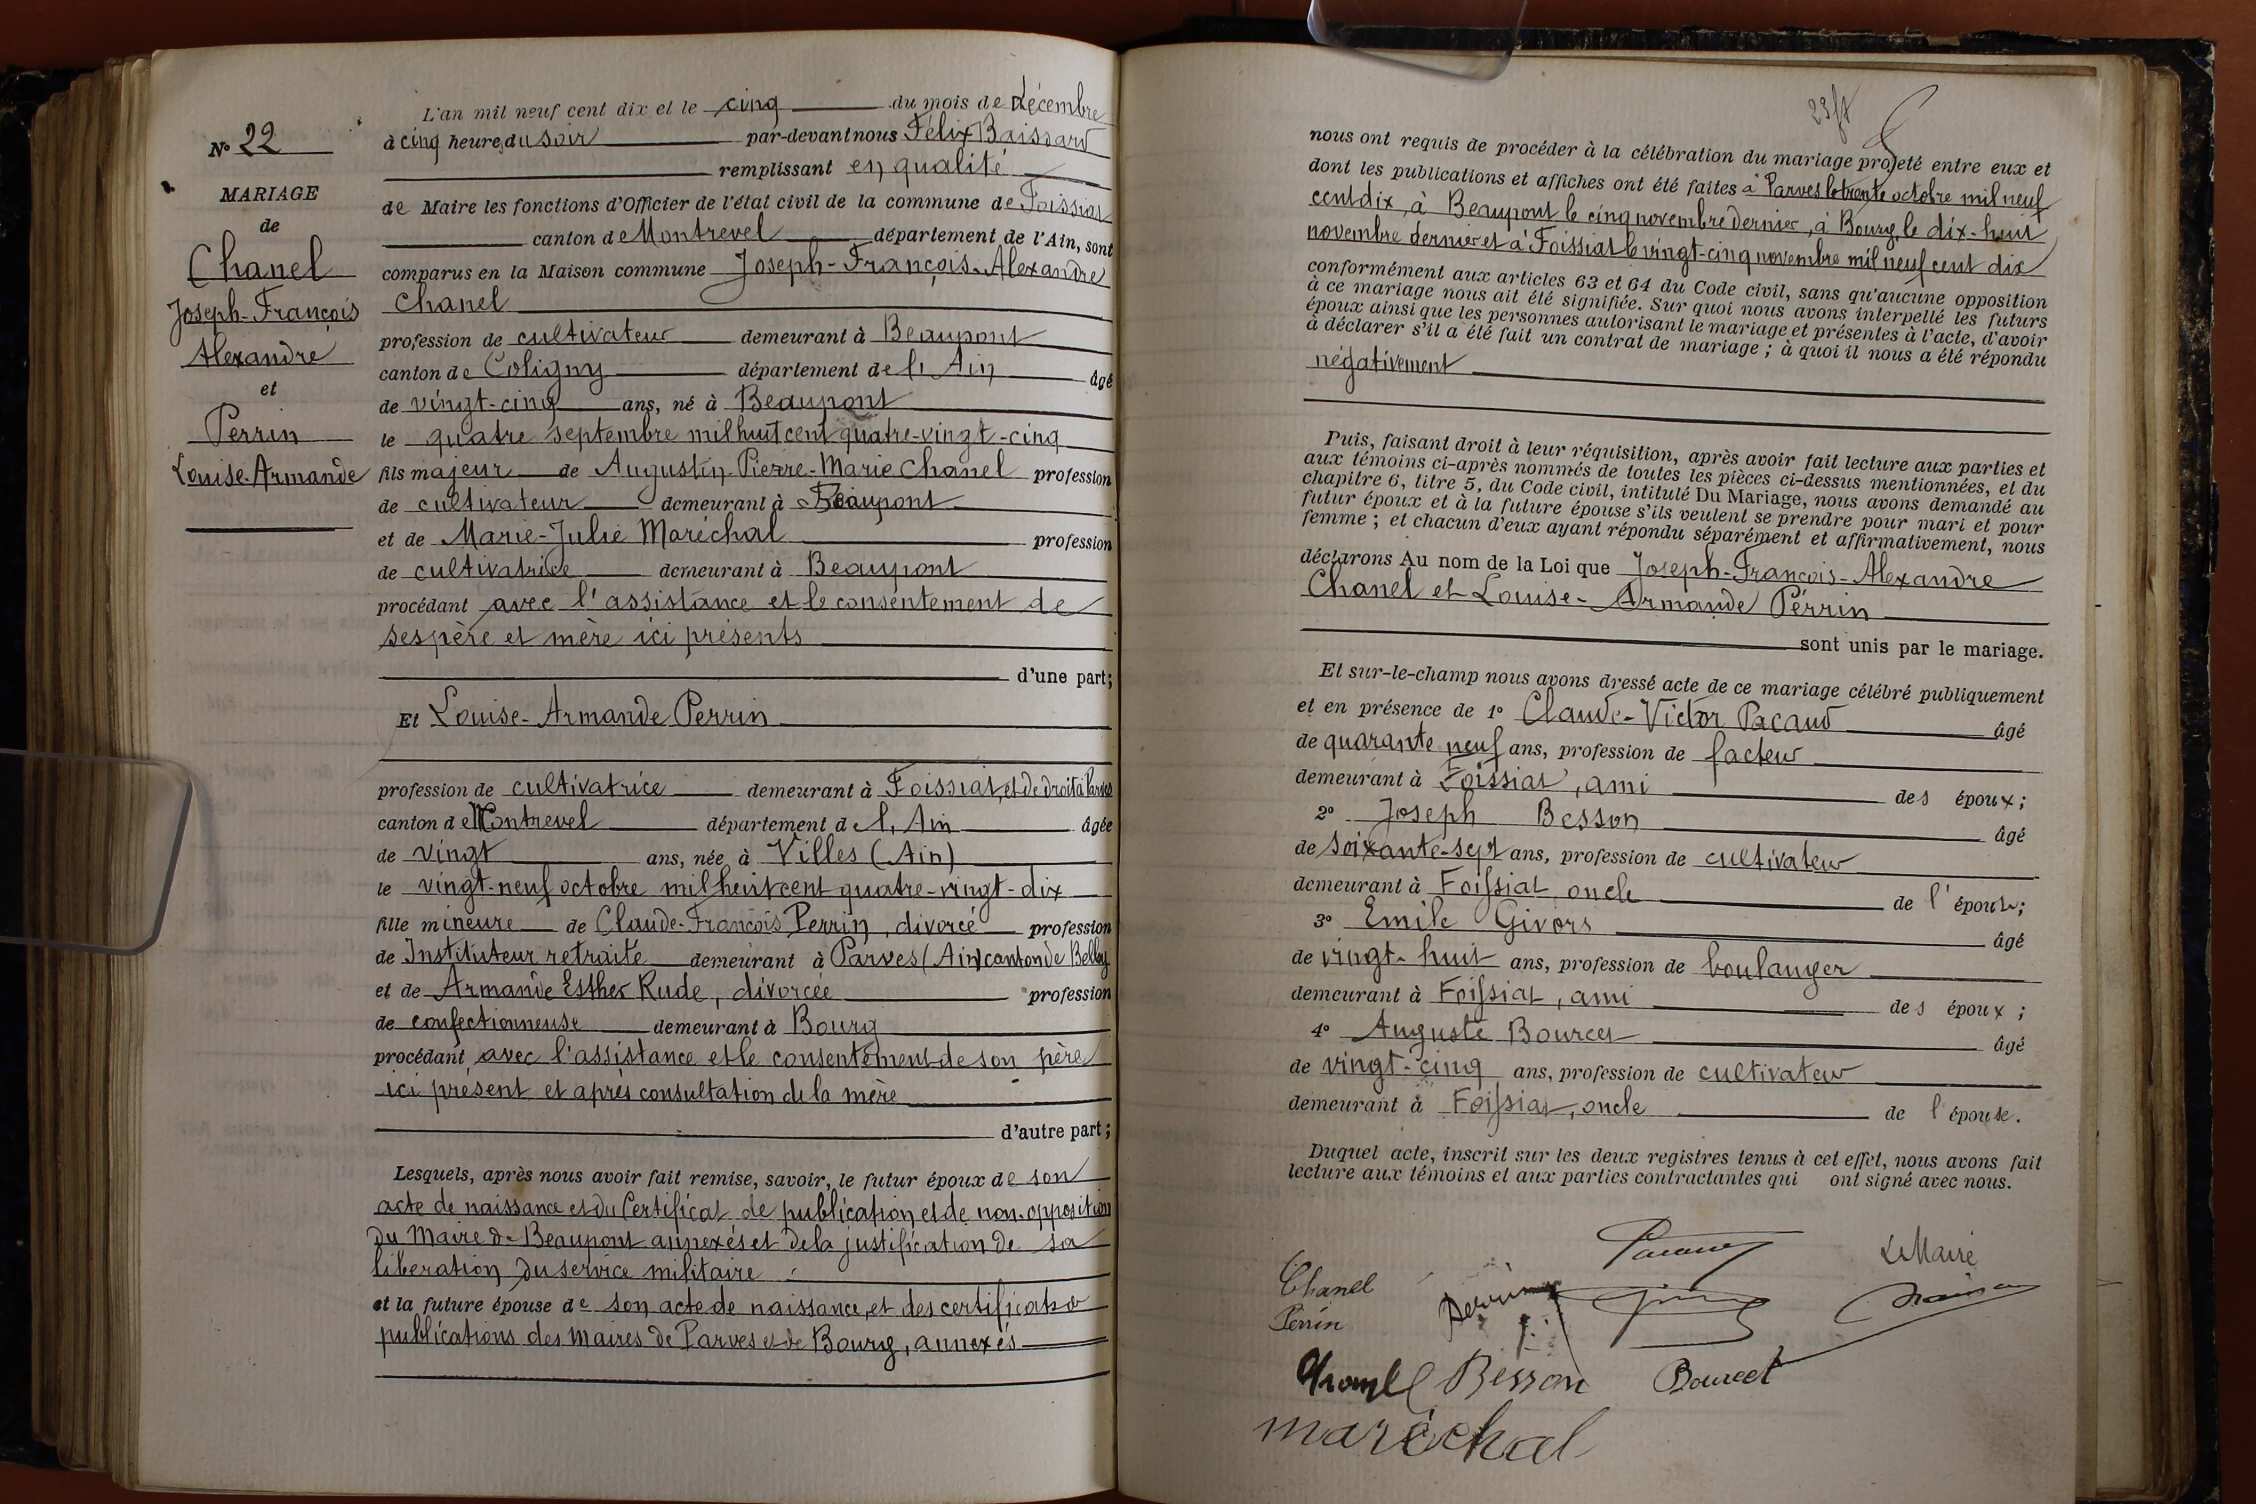 N° 22
MARIAGE
de
Chanel
Joseph-François
Alexandre
et
Perrin
Louise-Armande
L'an mil neuf cent dix et le cinq du mois de Décembre
à cinq heures du soir par-devant nous Félix Baissard
remplissant en qualité
de Maire les fonctions d'Officier de l'état civil de la commune de Foissiat
canton de Montrevel département de l'Ain, sont
comparus en la Maison commune Joseph-François-Alexandre
Chanel
profession de cultivateur demeurant à Beaupont
canton de Coligny département de l'Ain âgé
de vingt-cinq ans, né à Beaupont
le quatre septembre mil huit cent quatre-vingt-cinq
fils majeur de Augustin-Pierre-Marie Chanel profession
de cultivateur demeurant à Beaupont
et de Marie-Julie Maréchal profession
de cultivatrice demeurant à Beaupont
procédant avec l'assistance et le consentement de
ses père et mère ici présents
d'une part;
Et Louise-Armande Perrin
profession de cultivatrice demeurant à Foissiat, et de droit à Parves
canton de Montrevel département de l'Ain âgée
de vingt ans, née à Villes (Ain)
le vingt-neuf octobre mil huit cent quatre-vingt-dix
fille mineure de Claude-François Perrin, divorcé profession
de Instituteur retraité demeurant à Parves (Ain) canton de Belley
et de Armande Esther Rude, divorcée profession
de confectionneuse demeurant à Bourg
procédant avec l'assistance et le consentement de son père
ici présent et après consultation de la mère
d'autre part;
Lesquels, après nous avoir fait remise, savoir, le futur époux de son
acte de naissance et du Certificat de publication et de non-opposition
du Maire de Beaupont annexés et de la justification de sa
libération du service militaire
et la future épouse de son acte de naissance, et des certificats de
publications des maires de Parves et de Bourg, annexés
23 f
nous ont requis de procéder à la célébration du mariage projeté entre eux et
dont les publications et affiches ont été faites à Parves le trente octobre mil neuf
cent dix, à Beaupont le cinq novembre dernier, à Bourg, le dix-huit
novembre dernier et à Foissiat le vingt-cinq novembre mil neuf cent dix
conformément aux articles 63 et 64 du Code civil, sans qu'aucune opposition
à ce mariage nous ait été signifiée. Sur quoi nous avons interpellé les futurs
époux ainsi que les personnes autorisant le mariage et présentes à l'acte, d'avoir
à déclarer s'il a été fait un contrat de mariage; à quoi il nous a été répondu
négativement
Puis, faisant droit à leur réquisition, après avoir fait lecture aux parties et
aux témoins ci-après nommés de toutes les pièces ci-dessus mentionnées, et du
chapitre 6, titre 5, du Code civil, intitulé Du Mariage, nous avons demandé au
futur époux et à la future épouse s'ils veulent se prendre pour mari et pour
femme; et chacun d'eux ayant répondu séparément et affirmativement, nous
déclarons Au nom de la Loi que Joseph-François-Alexandre
Chanel et Louise-Armande Perrin
sont unis par le mariage.
Et sur-le-champ nous avons dressé acte de ce mariage célébré publiquement
et en présence de 1° Claude-Victor Pacaud âgé
de quarante neuf ans, profession de facteur
demeurant à Foissiat, ami des époux;
2° Joseph Besson âgé
de soixante-sept ans, profession de cultivateur
demeurant à Foissiat oncle de l'épouse;
3° Emile Givors âgé
de vingt-huit ans, profession de boulanger
demeurant à Foissiat, ami des époux;
4° Auguste Bourcet âgé
de vingt-cinq ans, profession de cultivateur
demeurant à Foissiat, oncle de l'épouse.
Duquel acte, inscrit sur les deux registres tenus à cet effet, nous avons fait
lecture aux témoins et aux parties contractantes qui ont signé avec nous.
Pacaud
Le Maire
Chanel
Perrin
Perrin
Chanel Besson Bourcet
maréchal